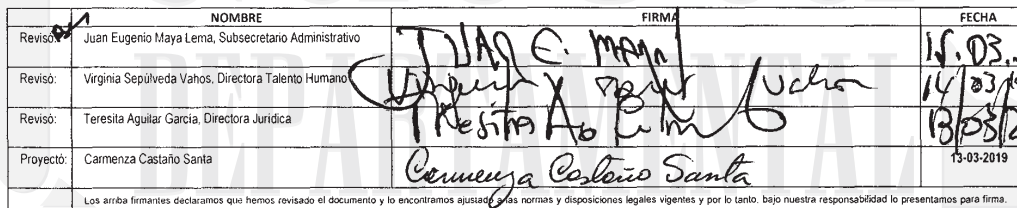 NOMBRE FIRMA FECHA
Revisó: Juan Eugenio Maya Lema, Subsecretario Administrativo JUAN E. MAYA 15.03.
Revisó: Virginia Sepúlveda Vahos, Directora Talento Humano 14/03/
Revisó: Teresita Aguilar García, Directora Jurídica Teresita 13/03/
Proyectó: Carmenza Castaño Santa Carmenza Castaño Santa 13-03-2019
Los arriba firmantes declaramos que hemos revisado el documento y lo encontramos ajustado a las normas y disposiciones legales vigentes y por lo tanto, bajo nuestra responsabilidad lo presentamos para firma.
DEPARTAMENTAL